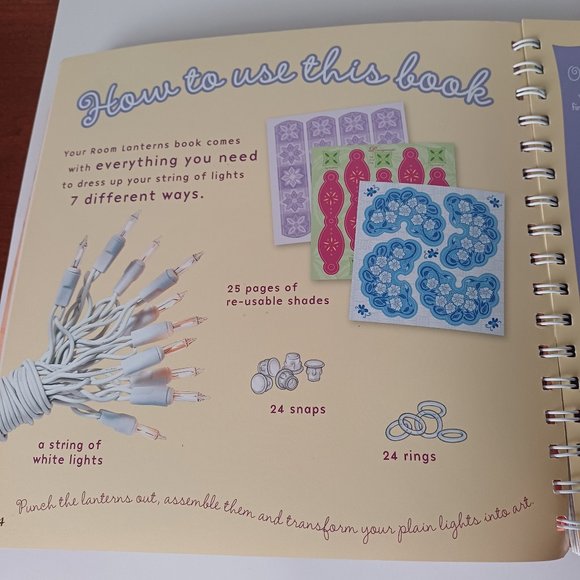 How to use this book
Your Room Lanterns book comes
with everything you need
to dress up your string of lights
7 different ways.
25 pages of
re-usable shades
24 snaps
a string of
white lights
24 rings
Punch the lanterns out, assemble them and transform your plain lights into art.
4